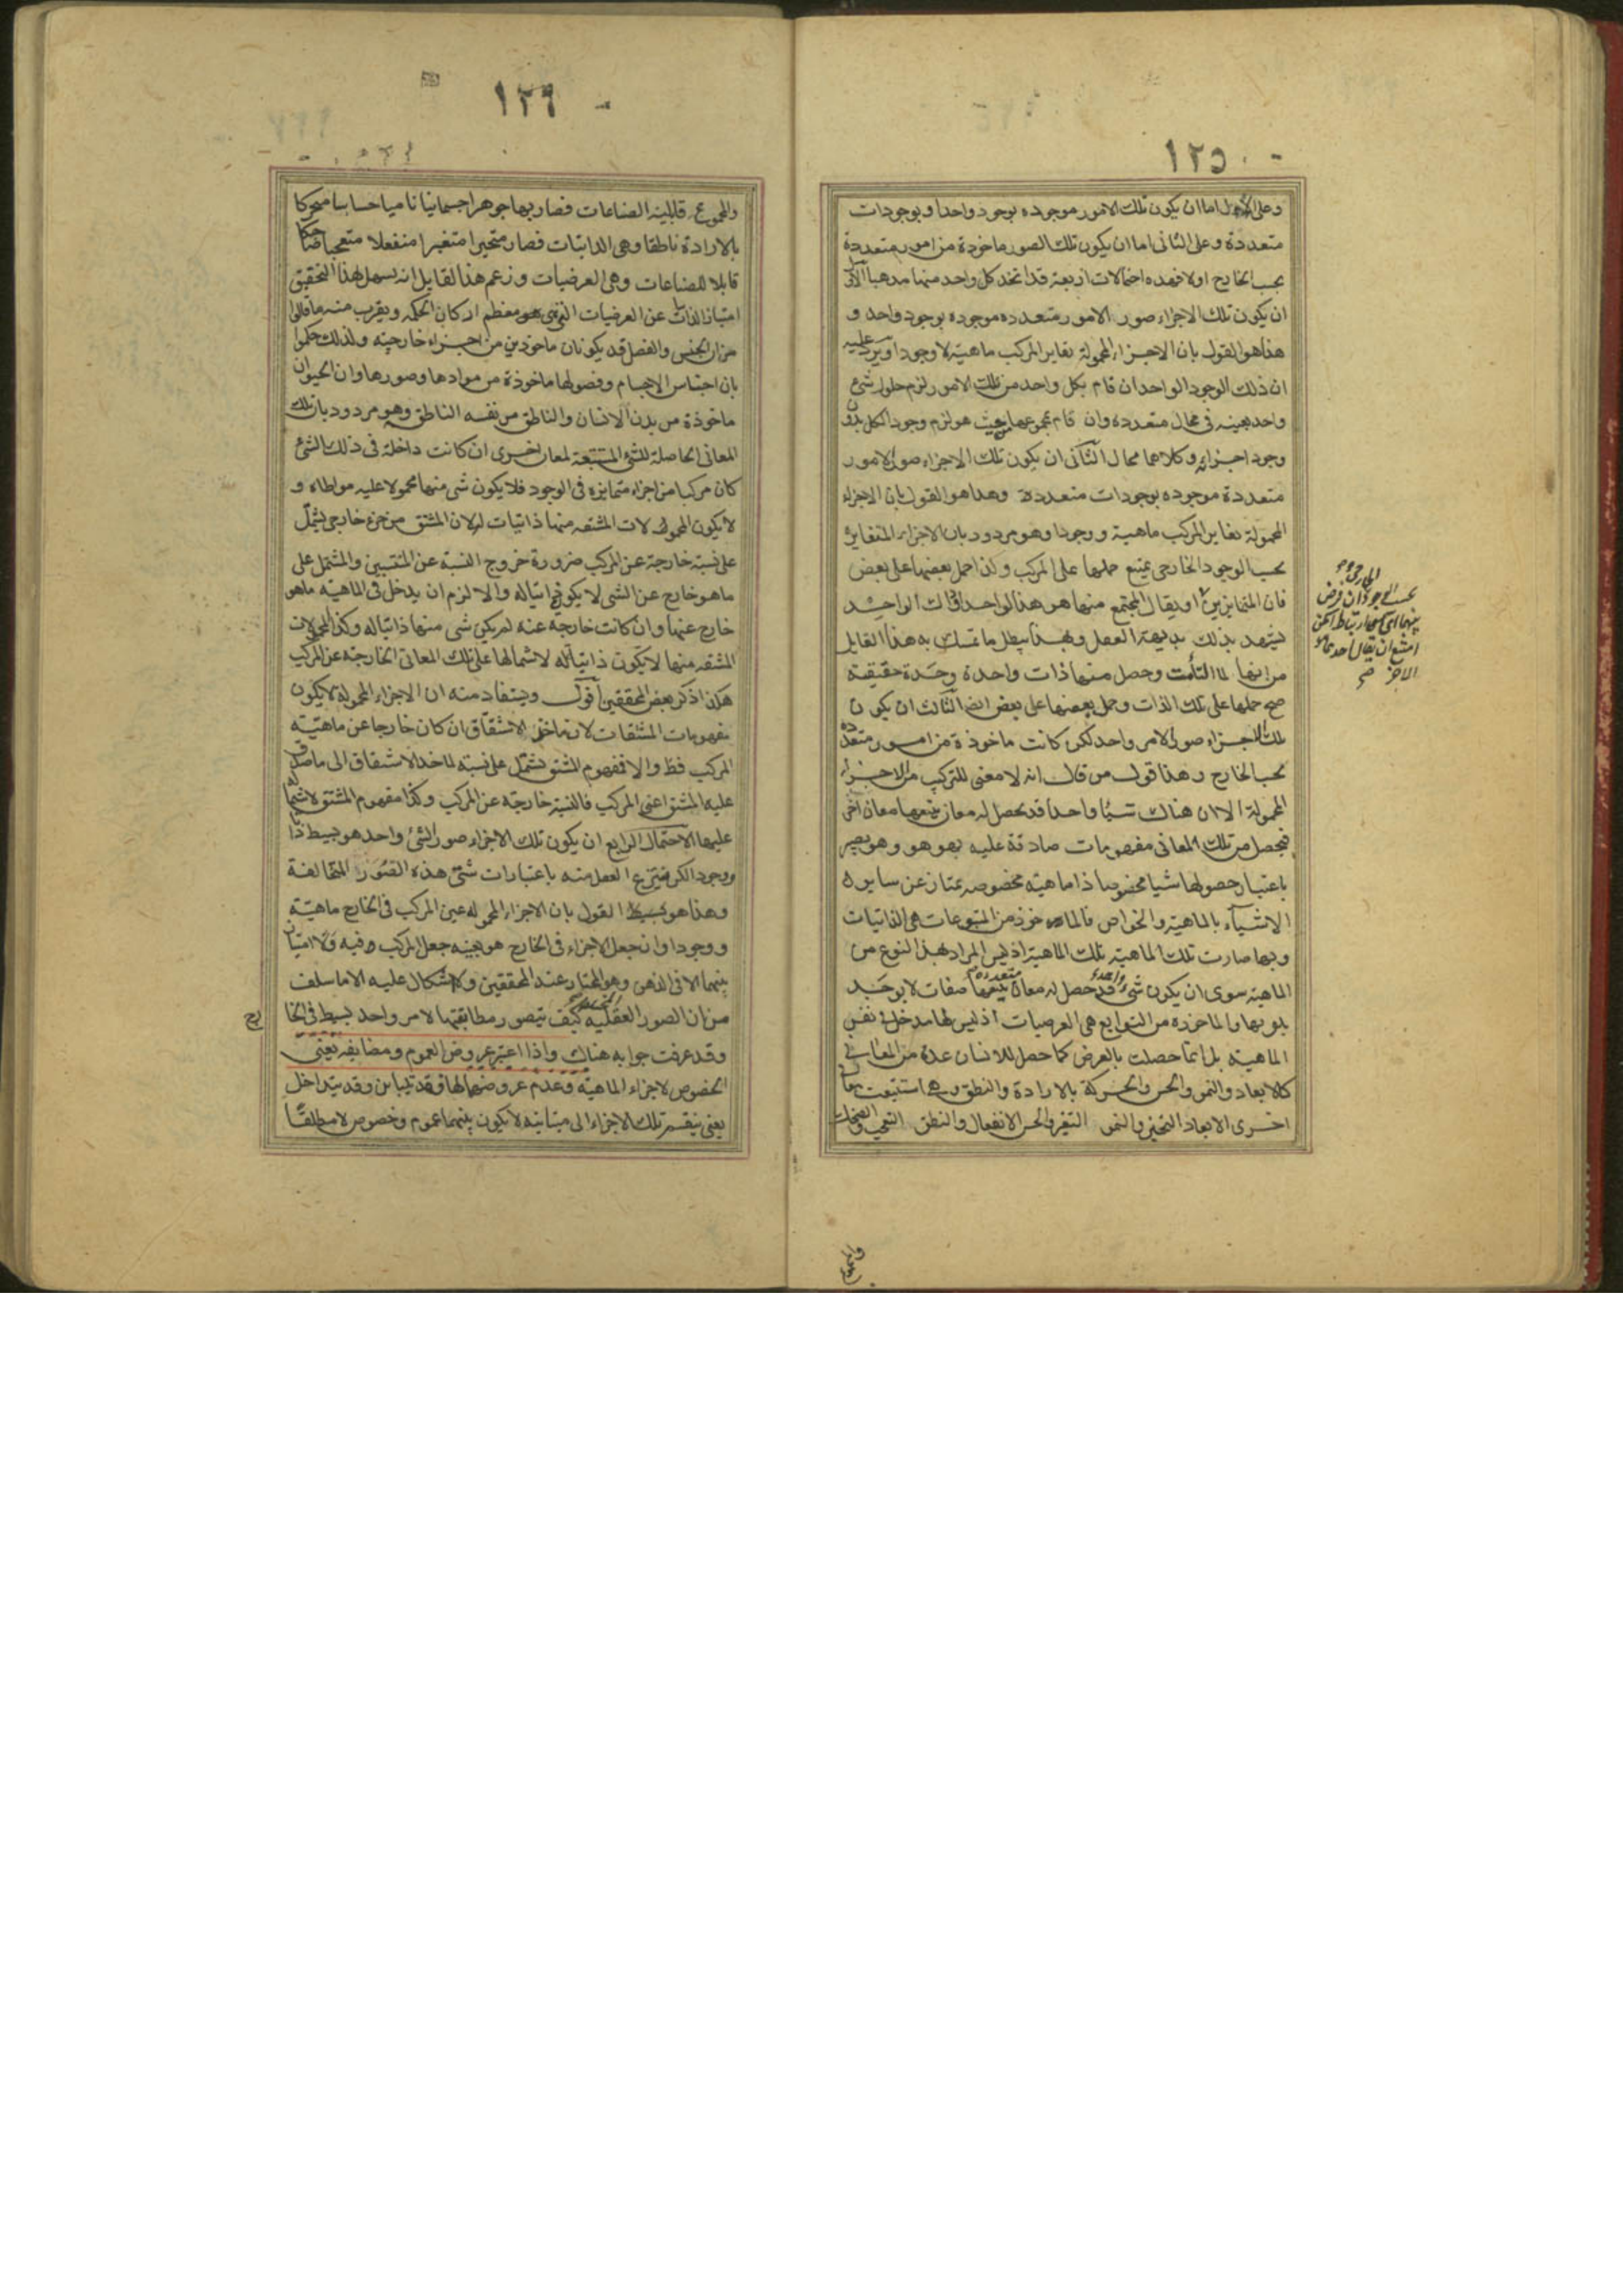 ١٢٥
وعلى الاول اما ان يكون تلك الامور موجوده بوجود واحد او بوجودات
متعددة وعلى الثانى اما ان يكون تلك الصور ماخوذة من امور متعددة
بحسب الخارج اولا فهذه احتمالات اربعة قد اتخذ كل واحد منها مذهبا الاول
ان يكون تلك الاجزاء صور الامور متعدده موجوده بوجود واحد و
هذا هو القول بان الاجزاء المحمولة تغاير المركب ماهية لا وجودا ويرد عليه
ان ذلك الوجود الواحد ان قام بكل واحد من تلك الامور لزم حلول شئ
واحد بعينه فى محال متعدده وان قام بمجموعها من حيث هو لزم وجود الكل بدون
وجود اجزائه وكلاهما محال الثانى ان يكون تلك الاجزاء صور الامور
متعددة موجوده بوجودات متعددة وهذا هو القول بان الاجزاء
المحمولة تغاير المركب ماهية ووجودا وهو مردود بان الاجزاء المتغايرة
بحسب الوجود الخارجى يمتنع حملها على المركب وكذا حمل بعضها على بعض
فان المتمايزين او يقال المجتمع منهما هو هذا الواحد او ذاك الواحد
يشهد بذلك بديهة العقل وبهذا يبطل ما تمسك به هذا القايل
من انها لما التأمت وحصل منها ذات واحدة وحدة حقيقية
صح حملها على تلك الذات وحمل بعضها على بعض ايضا الثالث ان يكون
تلك الاجزاء صورا لامر واحد لكن كانت ماخوذة من امور متعدده
بحسب الخارج وهذا قول من قال انه لا معنى للتركيب من الاجزاء
المحمولة الا ان هناك شيئا واحدا قد يحصل له معان يتبعها معان اخرى
فيحصل من تلك المعانى مفهومات صادقة عليه بهو هو وهو يصير
باعتبار حصولها شيا مخصوصا ذا ماهية مخصوصه يمتاز عن ساير
الاشياء بالماهية والخواص فالماخوذ من المتبوعات هى الذاتيات
وبها صارت تلك الماهية تلك الماهية اذ ليس المراد بهذا النوع من
الماهية سوى ان يكون شئ واحد قد حصل له معان متعدده يتبعها صفات لا يوجد
بدونها والماخوذه من التوابع هى العرضيات اذ ليس لها مدخل فى نفس
الماهية بل انما حصلت بالعرض كما حصل للانسان عدة من المعانى
كالابعاد والنمو والحس والحركة بالارادة والنطق وهى استتبعت معانى
اخرى الابعاد التحيز والنمو التغير والحس الانفعال والنطق التعجب والضحك
الخارجى
بحسب الوجود ان فرض
بينهما اى ارتباط امكن
امتنع ان يقال احدهما هو
الاخر صح
والمجموع
١٢٦
والمجموع قابلية الصناعات فصار بها جوهرا جسمانيا ناميا حساسا متحركا
بالارادة ناطقا وهى الذاتيات فصار متحيزا متغيرا منفعلا متعجبا ضاحكا
قابلا للصناعات وهى العرضيات وزعم هذا القايل انه يسهل لهذا التحقيق
امتياز الذاتيات عن العرضيات الذى هو معظم اركان الحكمة ويقرب منه ما قالوا
من ان الجنس والفصل قد يكونان ماخوذين من اجزاء خارجيته ولذلك حكموا
بان اجناس الاجسام وفصولها ماخوذة من موادها وصورها وان الحيوان
ماخوذة من بدن الانسان والناطق من نفسه الناطقه وهو مردود بان تلك
المعانى الحاصلة للشئ المستتبعة لمعان اخرى ان كانت داخلة فى ذلك الشئ
كان مركبا من اجزاء متمايزه فى الوجود فلا يكون شى منها محمولا عليه مواطاه و
لا يكون المحمولات المشتقه منها ذاتيات له لان المشتق من جزء خارجى يشتمل
على نسبة خارجة عن المركب ضرورة خروج النسبة عن المنتسبين والمشتمل على
ما هو خارج عن الشى لا يكون ذاتيا له والا لزم ان يدخل فى الماهية ما هو
خارج عنها وان كانت خارجة عنه لم يكن شى منها ذاتيا له وكذا المحمولات
المشتقه منها لا يكون ذاتيا له لاشتمالها على تلك المعانى الخارجة عن المركب
هكذا ذكر بعض المحققين اقول ويستفاد منه ان الاجزاء المحمولة لا يكون
مفهومات المشتقات لان ماخذ الاشتقاق ان كان خارجا عن ماهية
المركب فظ والا فمفهوم المشتق يشتمل على نسبة لماخذ الاشتقاق الى ما صدق
عليه المشتق اعنى المركب فالنسبة خارجة عن المركب وكذا مفهوم المشتق لاشتماله
عليها الاحتمال الرابع ان يكون تلك الاجزاء صورا لشئ واحد هو بسيط ذاتا
ووجودا لكن ينتزع العقل منه باعتبارات شتى هذه الصور المتخالفة
وهذا هو القول بان الاجزاء المحموله عين المركب فى الخارج ماهية
ووجودا وان جعل الاجزاء فى الخارج هو بعينه جعل المركب فيه ولا امتياز
بينهما الا فى الذهن وهو المختار عند المحققين ولا اشكال عليه الا ما سلف
من ان الصور العقليه المتخالفه كيف يتصور مطابقتها لامر واحد بسيط فى الخارج
وقد عرفت جوابه هناك واذا اعتبر عروض العموم ومضايفه يعنى
الخصوص لاجزاء الماهية وعدم عروضهما لها فقد تتباين وقد يتداخل
يعنى ينقسم تلك الاجزاء الى متباينه لا يكون بينهما عموم وخصوص لا مطلقا